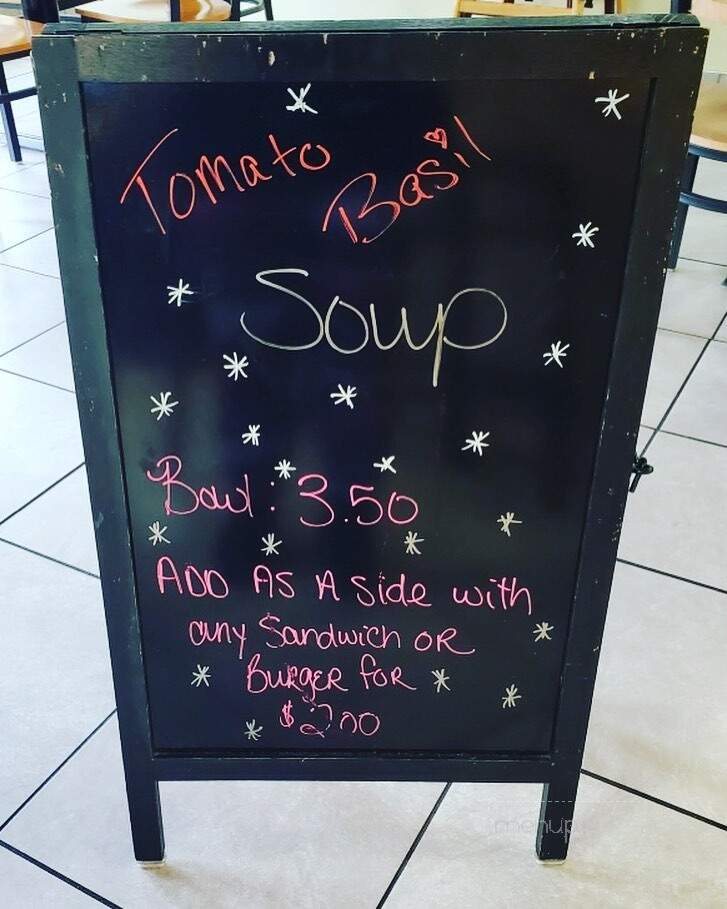 Tomato Basil
Soup
Bowl: 3.50
ADD AS A Side with
any Sandwich OR
BURGER FOR
$2.00
menupix